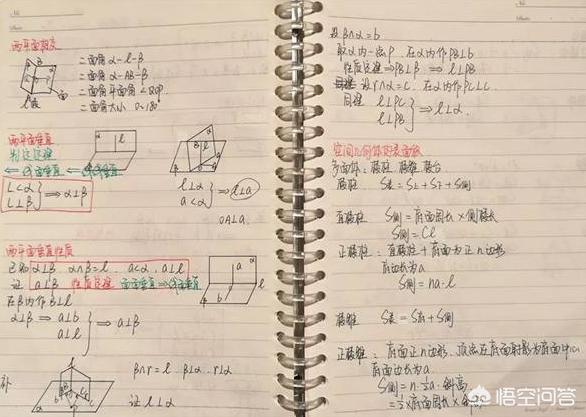 两平面相交
二面角 α-l-β
二面角 α-AB-β
二面角平面角 ∠AOP
二面角大小 0~180°
两平面垂直
判定定理
l⊂α
l⊥β
⇒ α⊥β
l⊥α
a⊂α
⇒ l⊥a
OA⊥a.
两平面垂直性质
已知 α⊥β α∩β=l . a⊂α, a⊥l
证 a⊥β 性质定理 面面垂直⇒线面垂直
在β内作 b⊥l
α⊥β ⇒ a⊥b
a⊥l
⇒ a⊥β
补
β∩r=l . β⊥α . r⊥α
证 l⊥α
设 β∩α=b
取α内一点P, 在α内作 PB⊥b
性质定理 ⇒PB⊥β ⇒ l⊥PB
同理 设 r∩α=c. 在α内作PC⊥c.
同理 l⊥PC
l⊥PB
⇒ l⊥α.
空间几何体的表面积
多面体: 棱柱 棱锥 棱台
棱柱 S表=S上+S下+S侧
直棱柱 S侧=底面周长×侧棱长
S侧=Cl
正棱柱: 直棱柱+底面为正n边形
底边长为a
S侧=na·l
棱锥 S表=S底+S侧
正棱锥: 底面正n边形, 顶点在底面射影为底面中心
底面边长为a
S侧=n·½a·斜高
=½×底面周长×斜高
悟空问答